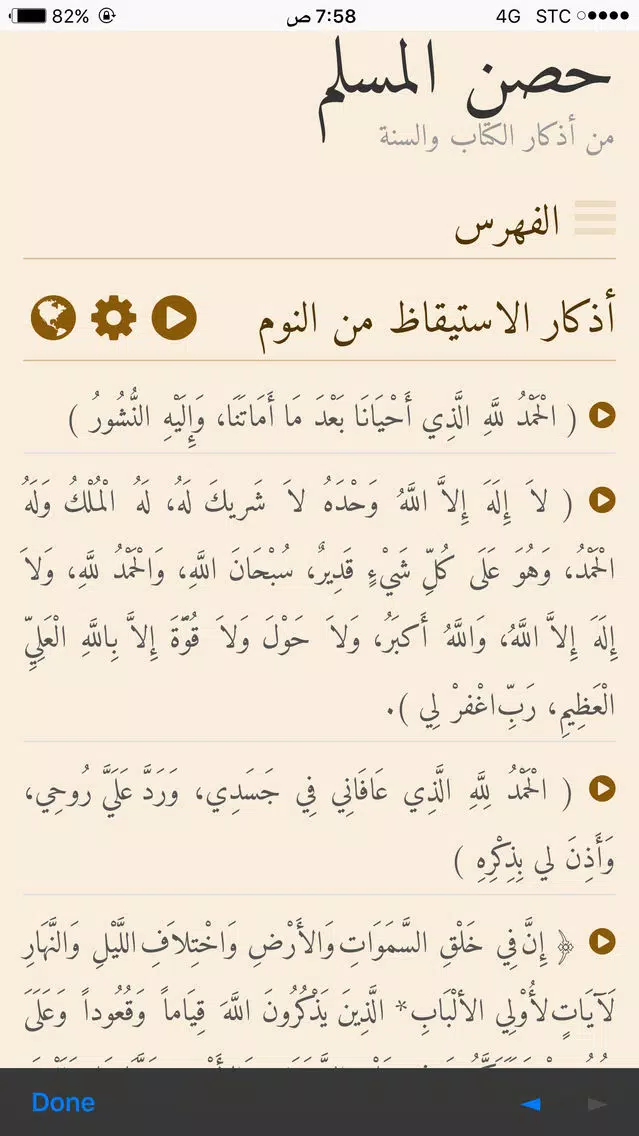 82% 7:58 ص 4G STC
حصن المسلم
من أذكار الكتاب والسنة
الفهرس
أذكار الاستيقاظ من النوم
( الْحَمْدُ للَّهِ الَّذِي أَحْيَانَا بَعْدَ مَا أَمَاتَنَا، وَإِلَيْهِ النُّشُورُ )
( لاَ إِلَهَ إِلاَّ اللَّهُ وَحْدَهُ لاَ شَريكَ لَهُ، لَهُ الْمُلْكُ وَلَهُ
الْحَمْدُ، وَهُوَ عَلَى كُلِّ شَيْءٍ قَدِيرٌ، سُبْحَانَ اللَّهِ، وَالْحَمْدُ للَّهِ، وَلاَ
إِلَهَ إِلاَّ اللَّهُ، وَاللَّهُ أَكبَرُ، وَلاَ حَوْلَ وَلاَ قُوَّةَ إِلاَّ بِاللَّهِ الْعَلِيِّ
الْعَظِيمِ، رَبِّ اغْفرْ لِي ).
( الْحَمْدُ لِلَّهِ الَّذِي عَافَانِي فِي جَسَدِي، وَرَدَّ عَلَيَّ رُوحِي،
وَأَذِنَ لي بِذِكْرِهِ )
﴿ إِنَّ فِي خَلْقِ السَّمَوَاتِ وَالأَرْضِ وَاخْتِلافِ اللَّيْلِ وَالنَّهَارِ
لَآيَاتٍ لأُوْلِي الألْبَابِ* الَّذِينَ يَذْكُرُونَ اللَّهَ قِيَاماً وَقُعُوداً وَعَلَىَ
Done